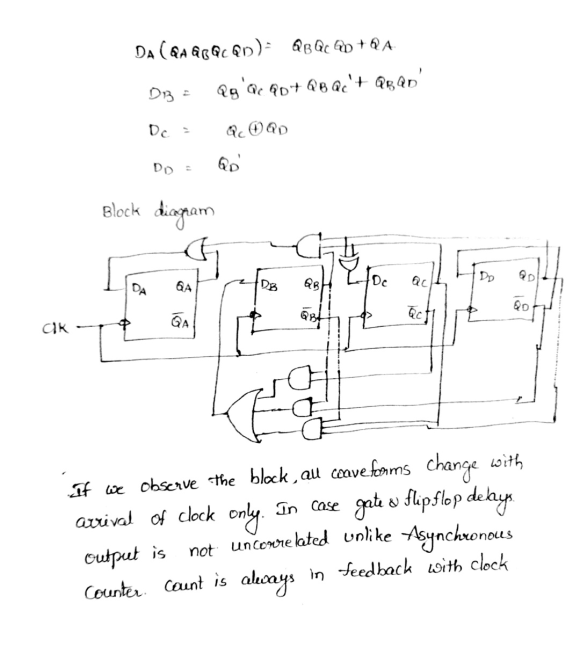 DA (QA QB QC QD) = QB QC QD + QA
DB = QB' QC QD + QB QC' + QB QD'
DC = QC ⊕ QD
DD = QD'
Block diagram
DA QA
Q̅A
DB QB
Q̅B
DC QC
Q̅C
DD QD
Q̅D
Clk
If we observe the block, all waveforms change with
arrival of clock only. In case gate & flipflop delays
output is not uncorrelated unlike Asynchronous
Counter. Count is always in feedback with clock